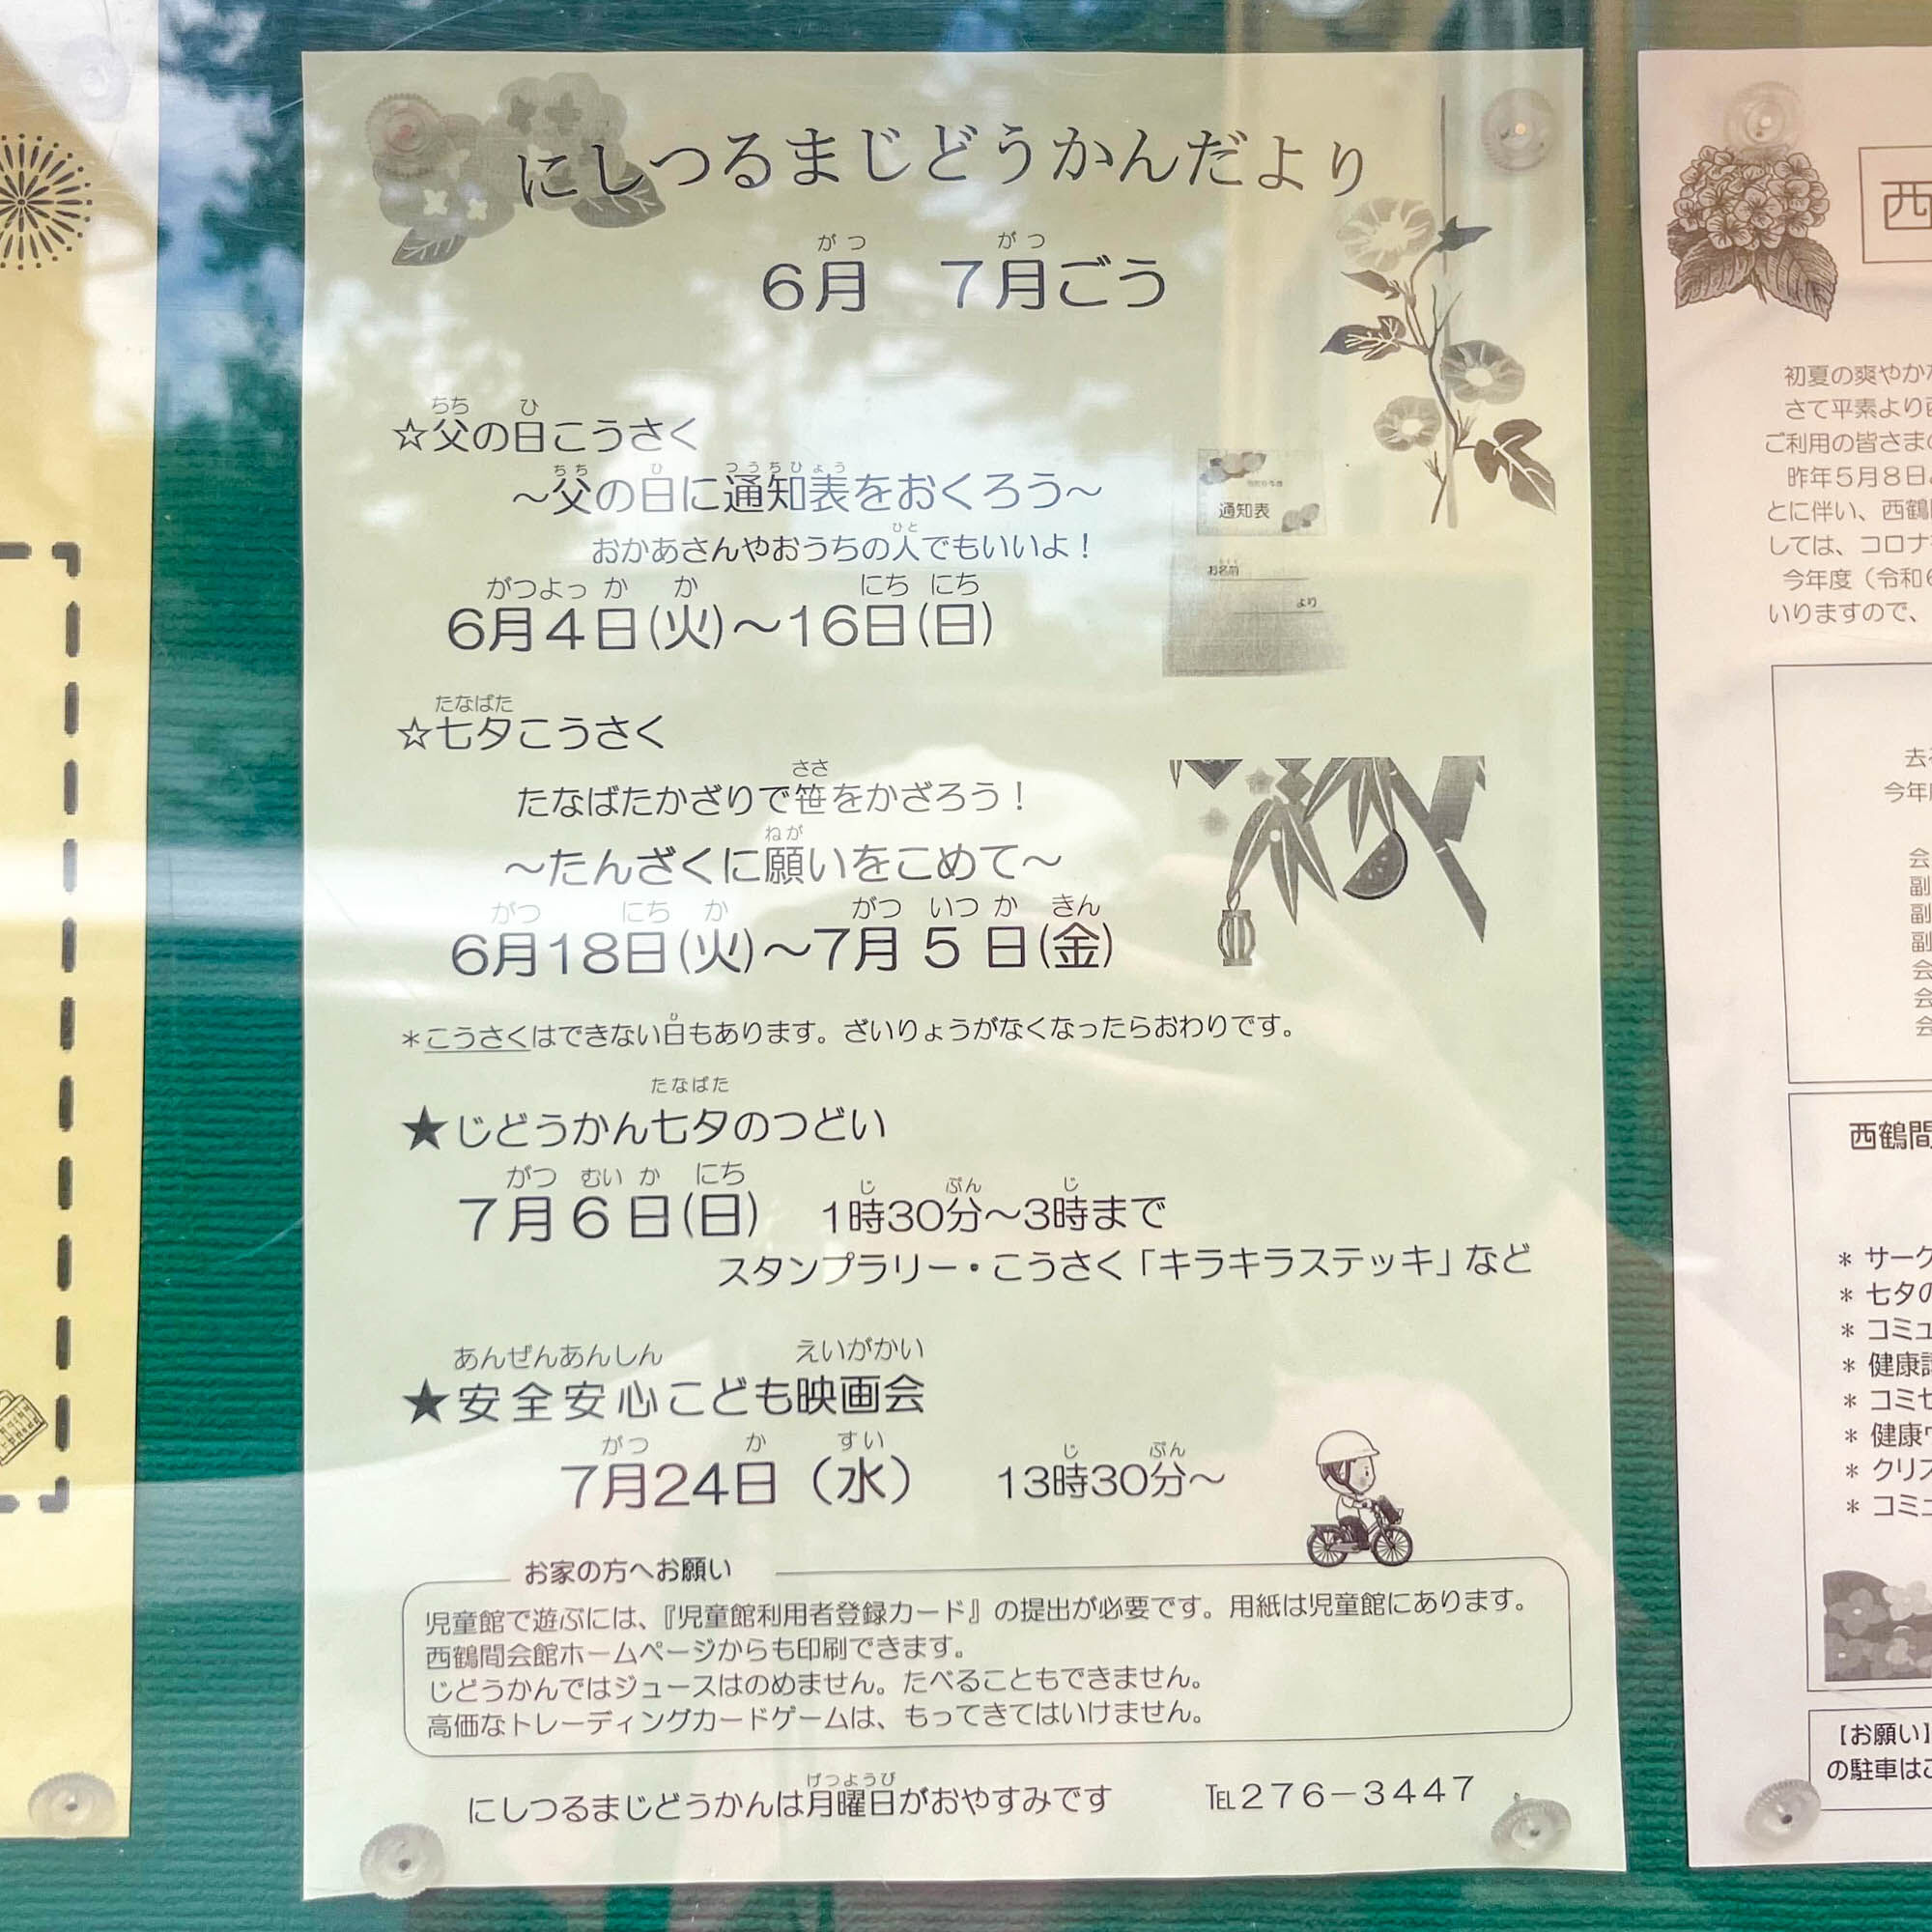 にしつるまじどうかんだより
がつ がつ
6月 7月ごう
ちち ひ
☆父の日こうさく
ちち ひ つうちひょう
～父の日に通知表をおくろう～
ひと
おかあさんやおうちの人でもいいよ！
がつよっか か にち にち
6月4日(火)～16日(日)
通知表
お名前
より
たなばた
☆七夕こうさく
ささ
たなばたかざりで笹をかざろう！
ねが
～たんざくに願いをこめて～
がつ にち か がつ いつ か きん
6月18日(火)～7月5日(金)
ひ
＊こうさくはできない日もあります。ざいりょうがなくなったらおわりです。
たなばた
★じどうかん七夕のつどい
がつ むい か にち じ ぷん じ
7月6日(日) 1時30分～3時まで
スタンプラリー・こうさく「キラキラステッキ」など
あんぜんあんしん えいがかい
★安全安心こども映画会
がつ か すい じ ぷん
7月24日（水） 13時30分～
お家の方へお願い
児童館で遊ぶには、『児童館利用者登録カード』の提出が必要です。用紙は児童館にあります。
西鶴間会館ホームページからも印刷できます。
じどうかんではジュースはのめません。たべることもできません。
高価なトレーディングカードゲームは、もってきてはいけません。
げつようび
にしつるまじどうかんは月曜日がおやすみです ℡276－3447
西
初夏の爽やかな
さて平素より
ご利用の皆さま
昨年5月8日
とに伴い、西鶴
しては、コロナ
今年度（令和6
いりますので、
去
今年
会
副
副
副
会
会
会
西鶴間
＊ サーク
＊ 七夕の
＊ コミュ
＊ 健康
＊ コミセ
＊ 健康
＊ クリス
＊ コミ
【お願い】
の駐車は